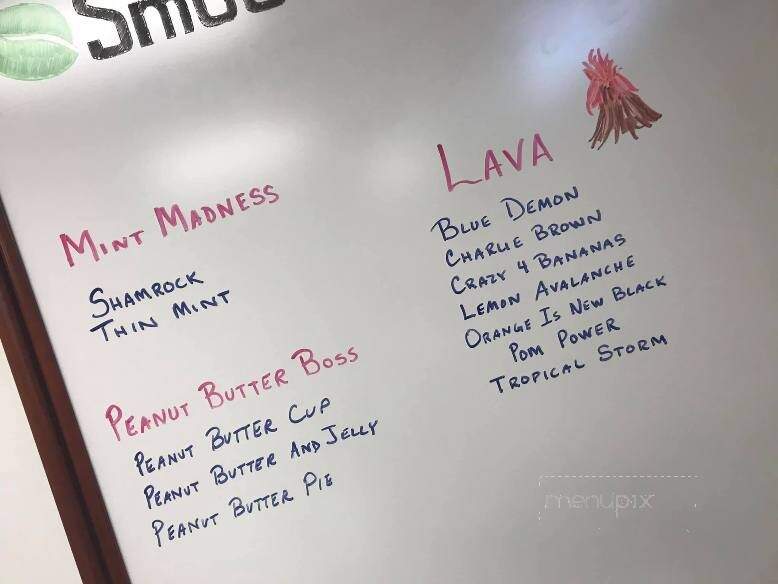 Smoo
MINT MADNESS
SHAMROCK
THIN MINT
PEANUT BUTTER BOSS
PEANUT BUTTER CUP
PEANUT BUTTER AND JELLY
PEANUT BUTTER PIE
LAVA
BLUE DEMON
CHARLIE BROWN
CRAZY 4 BANANAS
LEMON AVALANCHE
ORANGE IS NEW BLACK
POM POWER
TROPICAL STORM
menupix